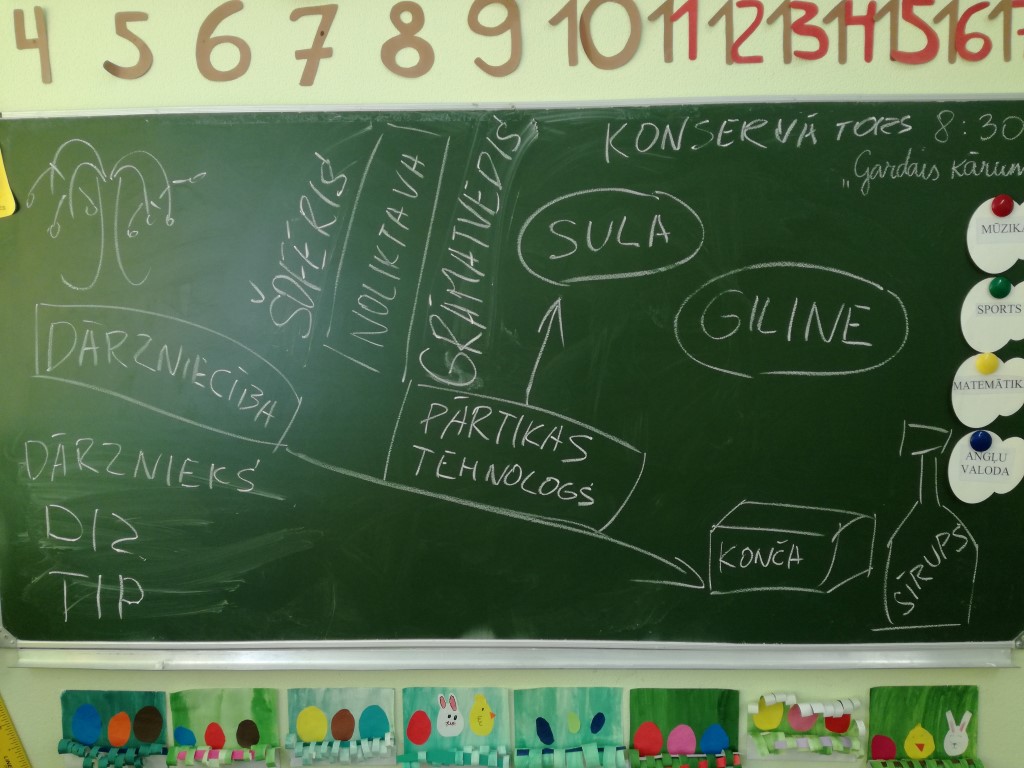 4 5 6 7 8 9 10 11 12 13 14 15 16 17
KONSERVĀTORS 8:30
"Gardais kārum
ŠOFĒRIS
NOLIKTAVA
GRĀMATVEDIS
SULA
GILINE
DĀRZNIECĪBA
PĀRTIKAS
TEHNOLOGS
DĀRZNIEKS
DIZ
TIP
KONČA
SĪRUPS
MŪZIKA
SPORTS
MATEMĀTIKA
ANGĻU
VALODA